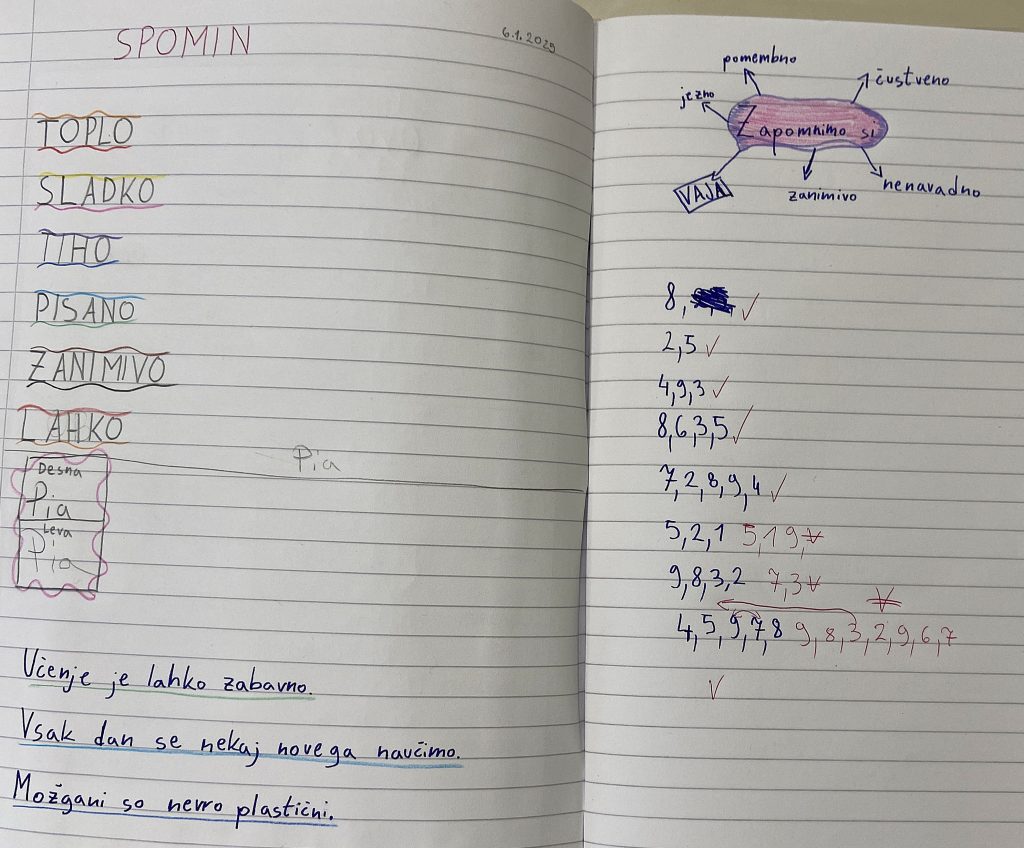 SPOMIN
6.1.2025
TOPLO
SLADKO
TIHO
PISANO
ZANIMIVO
LAHKO
Pia
Desna
Pia
Leva
Pia
Učenje je lahko zabavno.
Vsak dan se nekaj novega naučimo.
Možgani so nevro plastični.
pomembno
čustveno
jezno
Zapomnimo si
VAJA
zanimivo
nenavadno
8,
2,5
4,9,3
8,6,3,5
7,2,8,9,4
5,2,1 5,19,
9,8,3,2 7,3
4,5,9,7,8 9,8,3,2,9,6,7